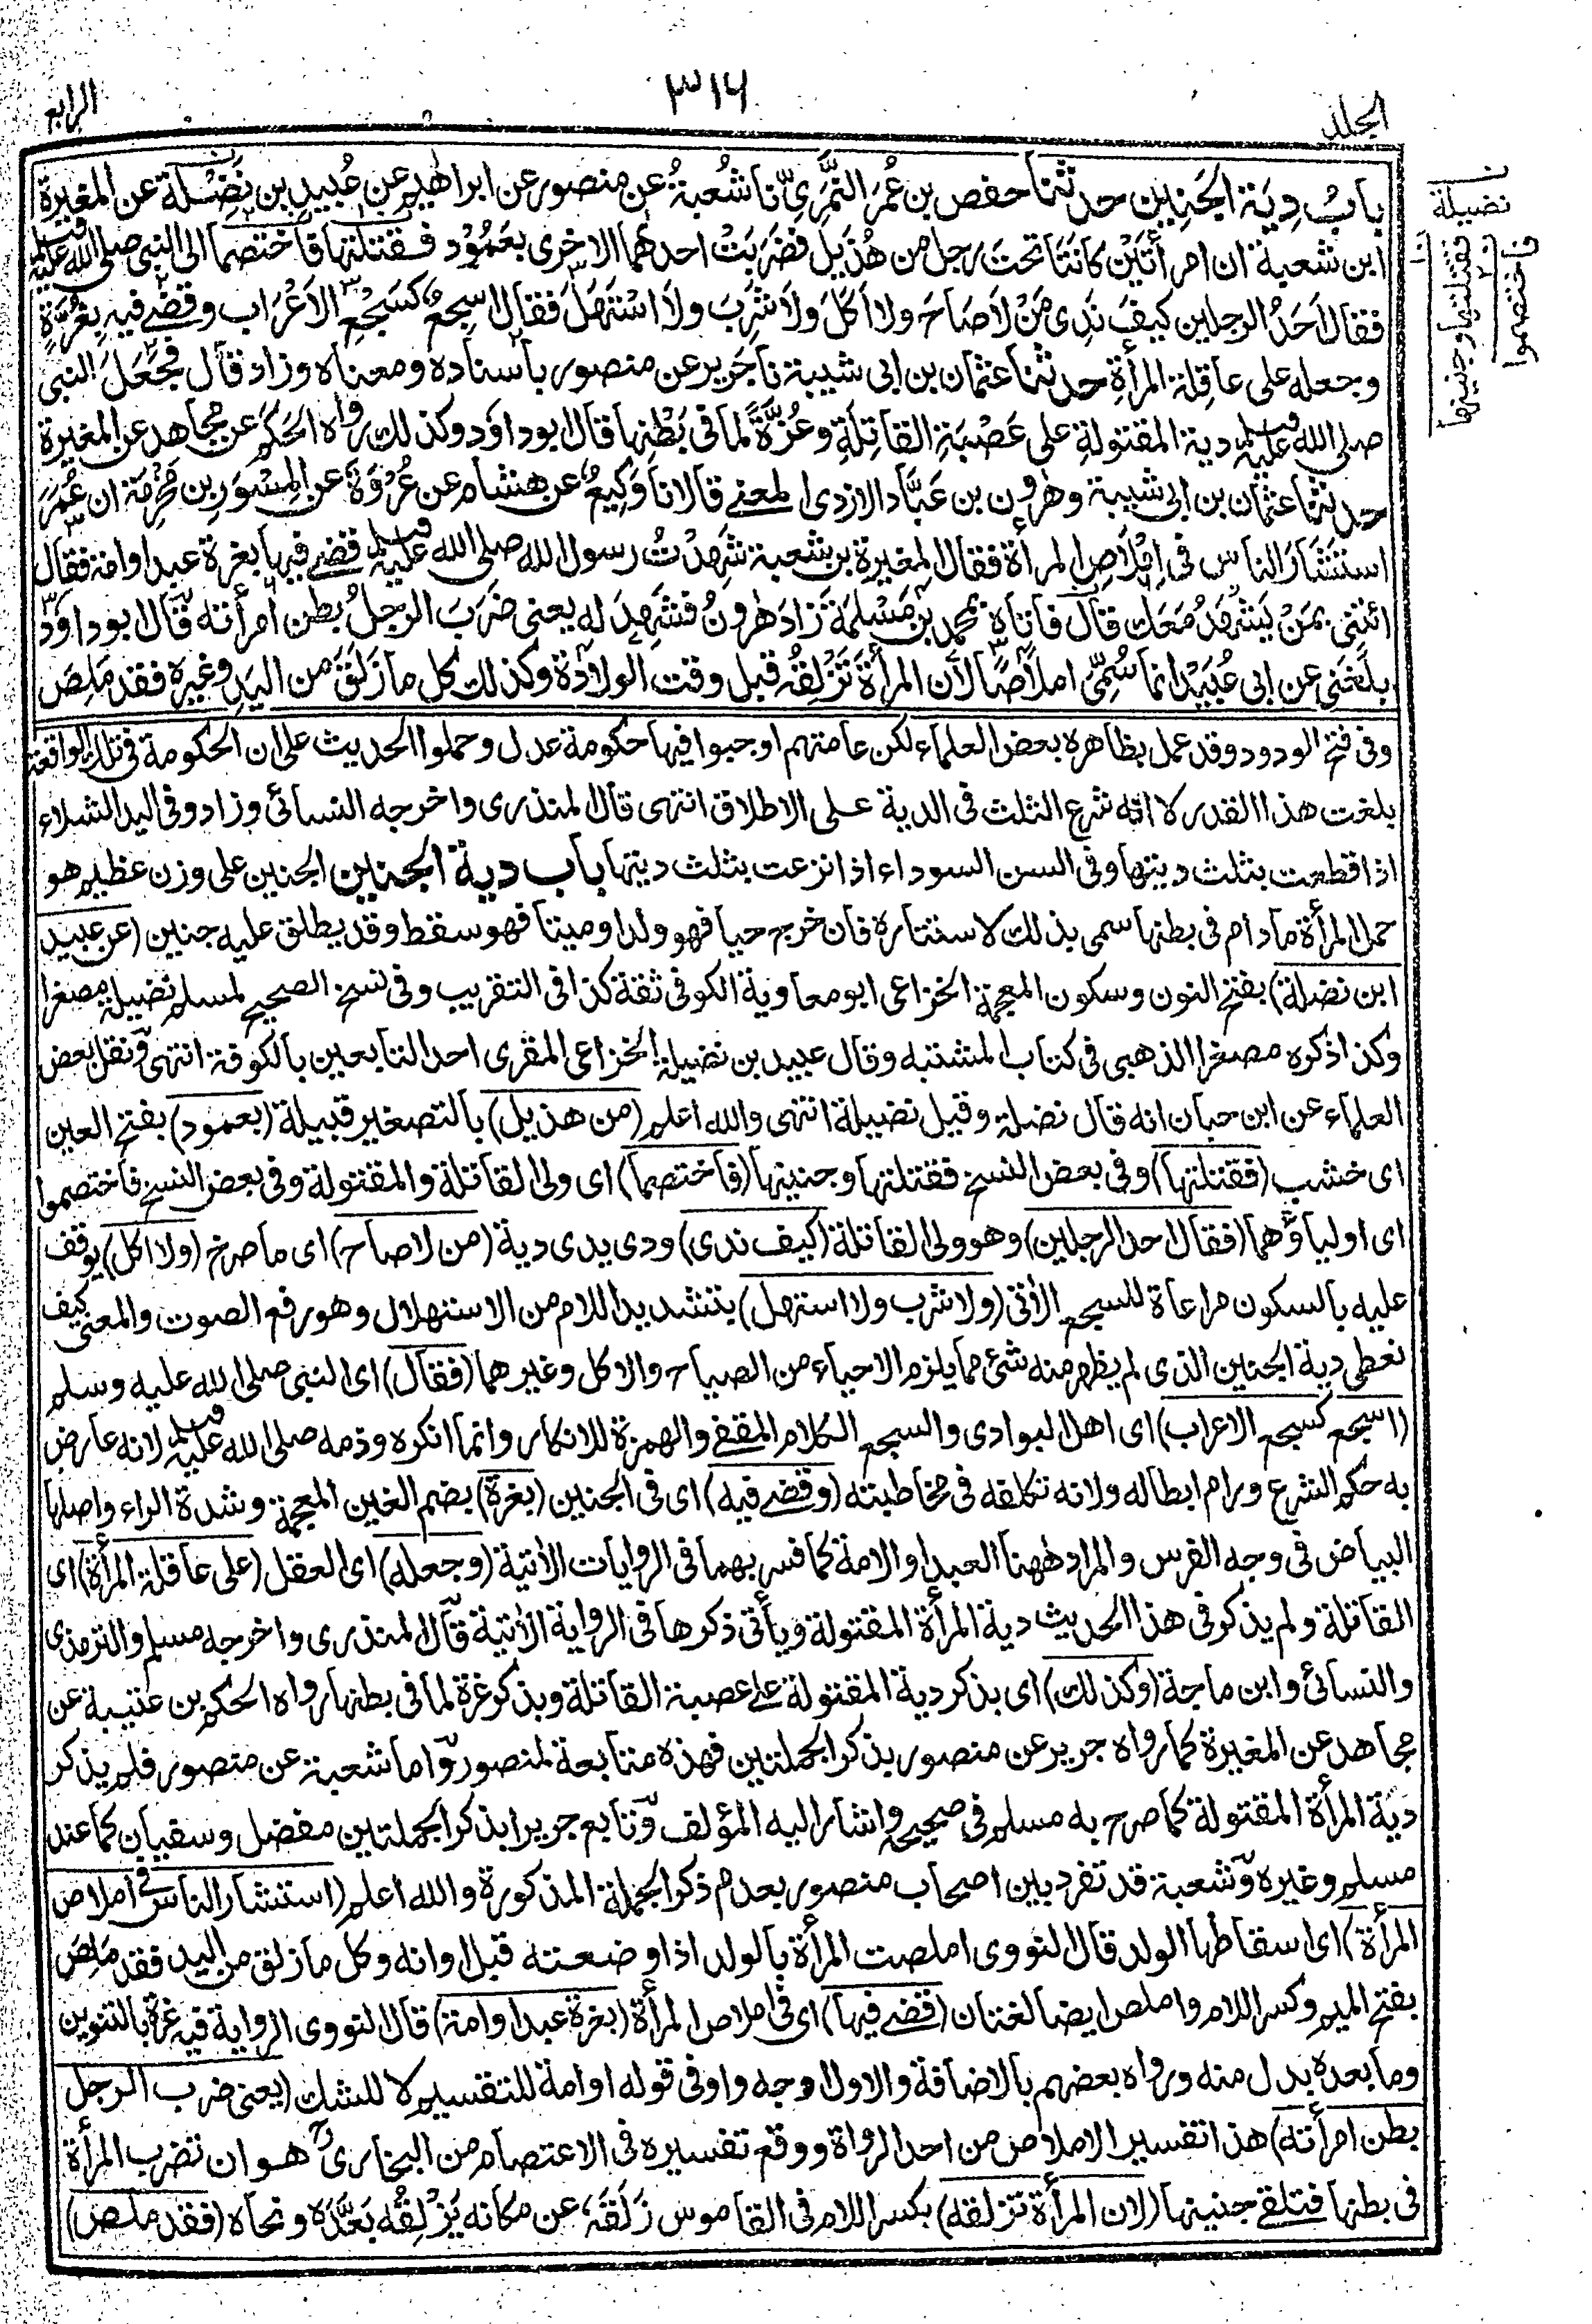 المجلد
٣١٤
الرابع
باب دِيَة الجَنِين حدثنا حفص بن عُمَرَ النَّمَرِيّ نا شُعبةُ عن منصور عن ابراهيم عن عُبيد بن نَضْلة عن المغيرة
ابن شعبة ان امرأتَيْن كانَتَا تحتَ رجل من هُذَيل فضَرَبَتْ احدٰهما الاخرى بعَمُوْد فقتلتها فاختصما الى النبى صلى الله عليه وسلم
فقال اَحَدُ الرجلين كيفَ نَدِى مَنْ لاَصَاحَ ولا اَكَلَ ولاَ شَرِبَ ولاَ اسْتَهَلَّ فقال اَسَجْعٌ كسَجْعِ الاَعْرَاب وقضٰى فيه بِغُرَّةٍ
وجعله على عاقِلة المرأةِ حدثنا عثمان بن ابى شيبة نا جَرير عن منصور باسناده ومعناه وزاد قال فجَعَلَ النبى
صلى الله عليه وسلم دية المقتولةِ على عَصَبَةِ القاتِلَةِ وغُرَّةً لما فى بَطْنِها قال ابوداود وكذلك رواه الحَكَم عن مُجاهِد عن المغيرة
حدثنا عثمان بن ابى شيبة وهٰرون بن عَبَّاد الازدى المعنى قالا نا وَكِيعٌ عن هشام عن عُرْوَةَ عن المِسْوَرِ بن مَخْرَمة ان عُمَرَ
استَشَارَ الناس فى اِمْلاَصِ المرأة فقال المغيرة بن شعبة شَهِدْتُ رسول الله صلى الله عليه وسلم قضى فيها بغرة عبد او امة فقال
ائتنى بمَنْ يَشْهَدُ مَعَك قال فاتاه بمحمد بن مَسْلَمة زَادَ هٰرونُ فشَهِدَ له يعنى ضَرَبَ الرجلُ بطن امرأته قال ابوداود
بلغنى عن ابى عُبَيْد انما سُمِّىَ املاصًا لأن المرأة تَزْلِقُه قبل وقت الولادة وكذلك كل ما زَلَقَ من اليَدِ وغيره فقد مَلِصَ
نضيلة
فقتلتها وجنينها
فاختصموا
وفى فتح الودود وقد عمل بظاهره بعض العلماء لكن عامتهم اوجبوا فيها حكومة عدل وحملوا الحديث على ان الحكومة فى تلك الواقعة
بلغت هذا القدر لا انه شرع الثلث فى الدية على الاطلاق انتهى قال المنذرى واخرجه النسائى وزاد وفى اليد الشلاء
اذا قطعت بثلث ديتها وفى السن السوداء اذا نزعت بثلث ديتها باب دية الجنين الجنين على وزن عظيم هو
حمل المرأة مادام فى بطنها سمى بذلك لاستتاره فان خرج حيا فهو ولد او ميتا فهو سقط وقد يطلق عليه جنين (عن عبيد
ابن نضلة) بفتح النون وسكون المعجمة الخزاعى ابو معاوية الكوفى ثقة كذا فى التقريب وفى نسخ الصحيح لمسلم نضيلة مصغرا
وكذا ذكره مصغرا الذهبى فى كتاب المشتبه وقال عبيد بن نضيلة الخزاعى المقرى احد التابعين بالكوفة انتهى ونقل بعض
العلماء عن ابن حبان انه قال نضلة وقيل نضيلة انتهى والله اعلم (من هذيل) بالتصغير قبيلة (بعمود) بفتح العين
اى خشب (فقتلتها) وفى بعض النسخ فقتلتها وجنينها (فاختصما) اى ولى القاتلة والمقتولة وفى بعض النسخ فاختصموا
اى اولياؤهما (فقال احد الرجلين) وهو ولى القاتلة (كيف ندى) ودى يدى دية (من لا صاح) اى ما صرخ (ولا اكل) يوقف
عليه بالسكون مراعاة للسجع الأتى (ولا شرب ولا استهل) بتشديد اللام من الاستهلال وهو رفع الصوت والمعنى كيف
نعطى دية الجنين الذى لم يظهر منه شئ مما يلزم الاحياء من الصياح والاكل وغيرهما (فقال) اى النبى صلى الله عليه وسلم
(اسجع كسجع الاعراب) اى اهل البوادى والسجع الكلام المقفى والهمزة للانكار وانما انكره وذمه صلى الله عليه وسلم لانه عارض
به حكم الشرع ورام ابطاله ولانه تكلفه فى مخاطبته (وقضى فيه) اى فى الجنين (بغرة) بضم الغين المعجمة وشدة الراء واصلها
البياض فى وجه الفرس والمراد ههنا العبد او الامة كما فسر بهما فى الروايات الأتية (وجعله) اى العقل (على عاقلة المرأة) اى
القاتلة ولم يذكر فى هذا الحديث دية المرأة المقتولة ويأتى ذكرها فى الرواية الأتية قال المنذرى واخرجه مسلم والترمذى
والنسائى وابن ماجة (وكذلك) اى بذكر دية المقتولة على عصبة القاتلة وبذكر غرة لما فى بطنها رواه الحكم بن عتيبة عن
مجاهد عن المغيرة كما رواه جرير عن منصور بذكر الجملتين فهذه متابعة لمنصور واما شعبة عن منصور فلم يذكر
دية المرأة المقتولة كما صرح به مسلم فى صحيحه واشار اليه المؤلف وتابع جريرا بذكر الجملتين مفضل وسفيان كما عند
مسلم وغيره وشعبة قد تفرد بين اصحاب منصور بعدم ذكر الجملة المذكورة والله اعلم (استشار الناس فى املاص
المرأة) اى اسقاطها الولد قال النووى املصت المرأة بالولد اذا وضعته قبل اوانه وكل ما زلق من اليد فقد مَلِصَ
بفتح الميم وكسر اللام واملص ايضا لغتان (قضى فيها) اى فى املاص المرأة (بغرة عبد او امة) قال النووى الرواية فيه غرة بالتنوين
وما بعده بدل منه ورواه بعضهم بالاضافة والاول اوجه واو فى قوله او امة للتقسيم لا للشك (يعنى ضرب الرجل
بطن امرأته) هذا تفسير الاملاص من احد الرواة ووقع تفسيره فى الاعتصام من البخارى هو ان تضرب المرأة
فى بطنها فتلقى جنينها (لان المرأة تزلقه) بكسر اللام فى القاموس زَلَقَه عن مكانه يَزْلِقُه بَعَّدَه ونحاه (فقد ملص)